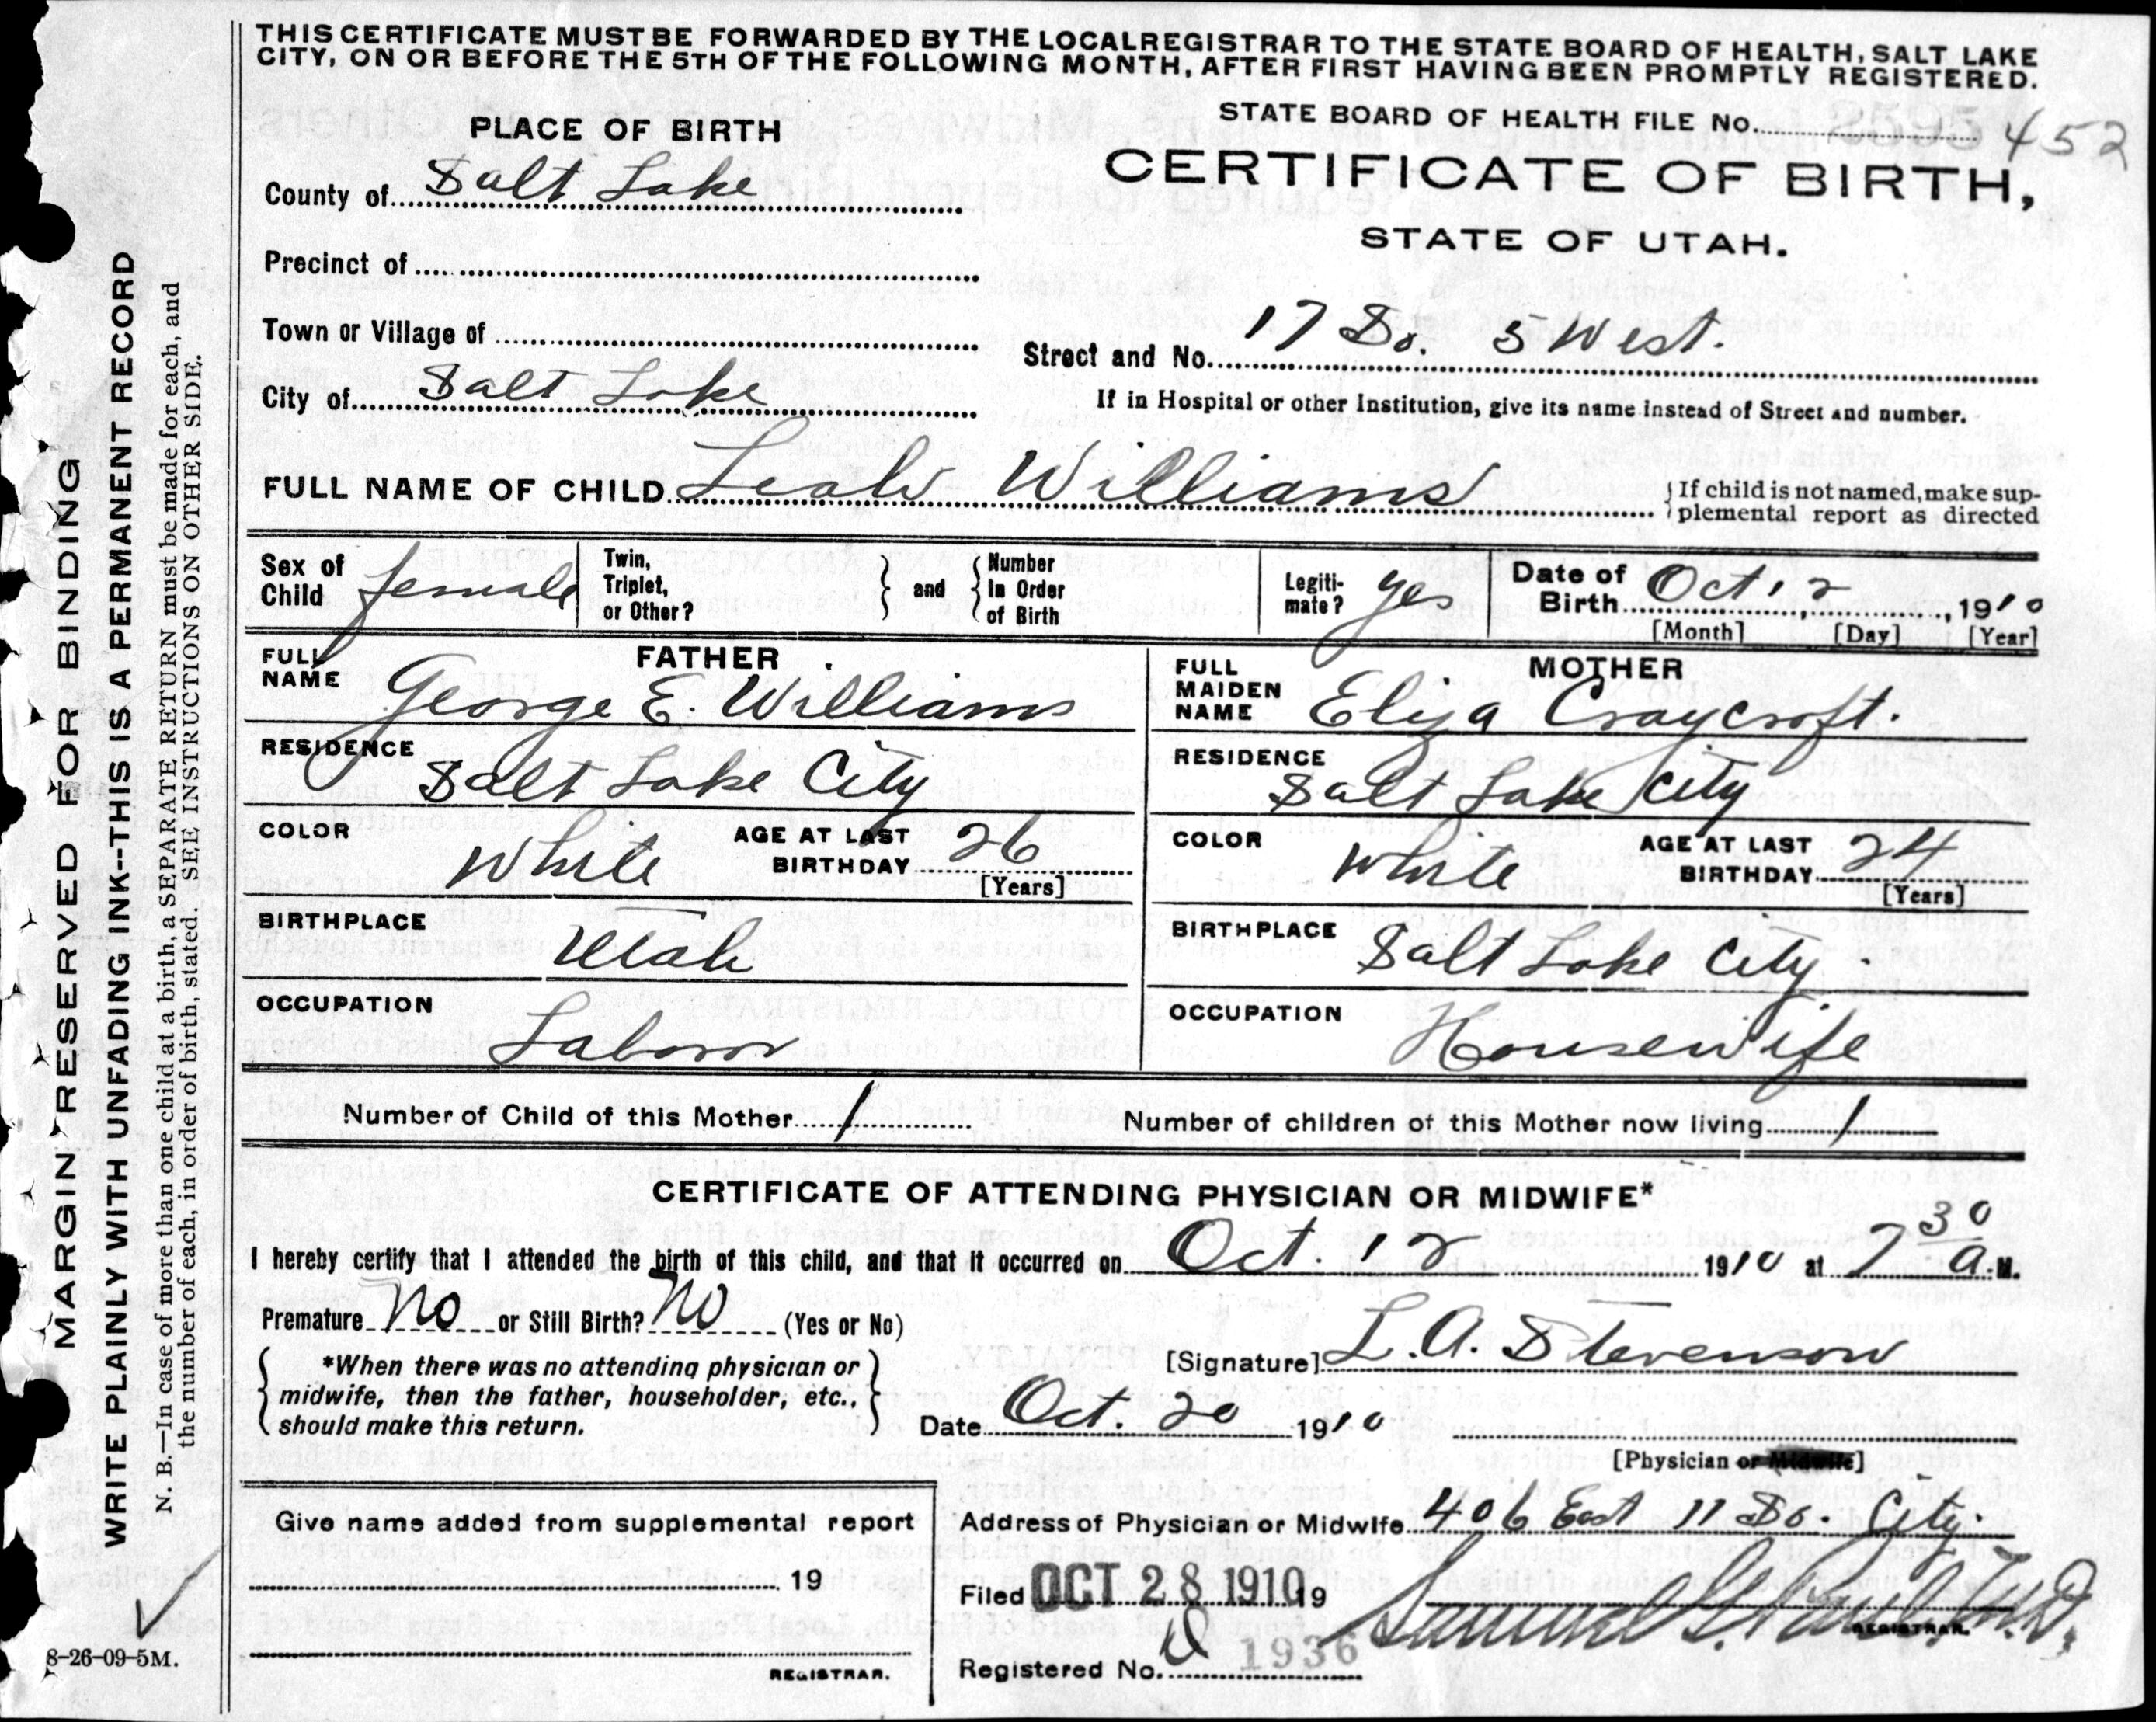 THIS CERTIFICATE MUST BE FORWARDED BY THE LOCAL REGISTRAR TO THE STATE BOARD OF HEALTH, SALT LAKE
CITY, ON OR BEFORE THE 5TH OF THE FOLLOWING MONTH, AFTER FIRST HAVING BEEN PROMPTLY REGISTERED.
STATE BOARD OF HEALTH FILE No. 452
PLACE OF BIRTH
CERTIFICATE OF BIRTH,
STATE OF UTAH.
County of Salt Lake
Precinct of
Town or Village of
Street and No. 17 So. 5 West.
City of Salt Lake
If in Hospital or other Institution, give its name instead of Street and number.
FULL NAME OF CHILD Leah Williams
{If child is not named, make sup-
plemental report as directed
Sex of Child female
Twin, Triplet, or Other? } and { Number in Order of Birth
Legiti-mate? yes
Date of Birth Oct 12, 1910
[Month] [Day] [Year]
FATHER
FULL NAME George E. Williams
RESIDENCE Salt Lake City
COLOR White AGE AT LAST BIRTHDAY 26
[Years]
BIRTHPLACE Utah
OCCUPATION Labor
MOTHER
FULL MAIDEN NAME Eliza Craycroft.
RESIDENCE Salt Lake City
COLOR White AGE AT LAST BIRTHDAY 24
[Years]
BIRTHPLACE Salt Lake City.
OCCUPATION Housewife
Number of Child of this Mother 1 Number of children of this Mother now living 1
CERTIFICATE OF ATTENDING PHYSICIAN OR MIDWIFE*
I hereby certify that I attended the birth of this child, and that it occurred on Oct. 12 1910 at 7 30 a.M.
Premature No or Still Birth? No (Yes or No)
{*When there was no attending physician or
midwife, then the father, householder, etc.,
should make this return.}
[Signature] L.A. Stevenson
Date Oct. 20 1910
[Physician or Midwife]
Give name added from supplemental report
19
REGISTRAR.
Address of Physician or Midwife 406 East 11 So. City.
Filed OCT 28 1910 19
Samuel G. Paul M.D.
REGISTRAR.
Registered No. 1936
MARGIN RESERVED FOR BINDING
WRITE PLAINLY WITH UNFADING INK--THIS IS A PERMANENT RECORD
N. B.—In case of more than one child at a birth, a SEPARATE RETURN must be made for each, and
the number of each, in order of birth, stated. SEE INSTRUCTIONS ON OTHER SIDE.
8-26-09-5M.